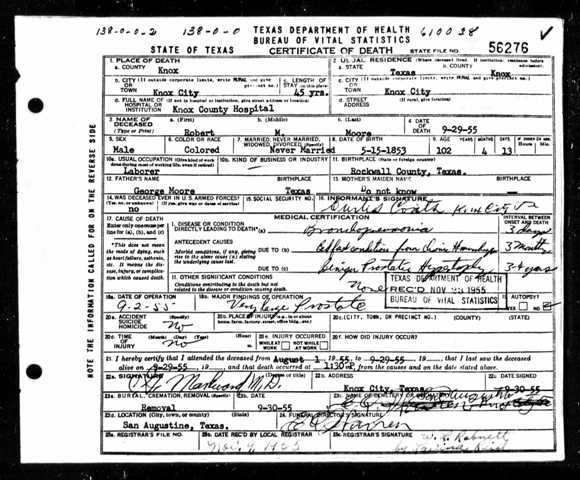 138-0-0-2 138-0-0 TEXAS DEPARTMENT OF HEALTH 610038
BUREAU OF VITAL STATISTICS
STATE OF TEXAS CERTIFICATE OF DEATH STATE FILE NO. 56276
1. PLACE OF DEATH
a. COUNTY Knox
2. USUAL RESIDENCE (Where deceased lived. If institution, residence before admission).
a. STATE Texas b. COUNTY Knox
b. CITY (If outside corporate limits, write RURAL and give precinct no.) OR TOWN Knox City
c. LENGTH OF STAY 45 yrs.
c. CITY (If outside corporate limits, write RURAL and give precinct no.) OR TOWN Knox City
d. FULL NAME OF (If not in hospital or institution, give street address or location) HOSPITAL OR INSTITUTION Knox County Hospital
d. STREET ADDRESS (If rural, give location)
3. NAME OF DECEASED (Type or Print) a. (First) Robert b. (Middle) M. c. (Last) Moore
4. DATE OF DEATH 9-29-55
5. SEX Male
6. COLOR OR RACE Colored
7. MARRIED, NEVER MARRIED, WIDOWED, DIVORCED (Specify) Never Married
8. DATE OF BIRTH 5-15-1853
9. AGE YEARS 102 MONTHS 4 DAYS 13
10a. USUAL OCCUPATION (Give kind of work done during most of working life, even if retired) Laborer
10b. KIND OF BUSINESS OR INDUSTRY
11. BIRTHPLACE (State or foreign country) Rockwall County, Texas.
12. FATHER'S NAME George Moore Texas
13. MOTHER'S MAIDEN NAME Do not know
14. WAS DECEASED EVER IN U.S. ARMED FORCES? (Yes, no, or unknown) (If yes, give war or dates of service) no
15. SOCIAL SECURITY NO.
16. INFORMANT'S SIGNATURE Curtis
17. CAUSE OF DEATH
Enter only one cause per line for (a), (b), and (c)
MEDICAL CERTIFICATION
INTERVAL BETWEEN ONSET AND DEATH
I. DISEASE OR CONDITION DIRECTLY LEADING TO DEATH* (a) Bronchopneumonia 3 days
*This does not mean the mode of dying, such as heart failure, asthenia, etc. It means the disease, injury, or complication which caused death.
ANTECEDENT CAUSES
Morbid conditions, if any, giving rise to the above cause (a) stating the underlying cause last.
DUE TO (b) condition from 3 months
DUE TO (c) Benign Prostatic Hypertrophy 3-4 years
II. OTHER SIGNIFICANT CONDITIONS
Conditions contributing to the death but not related to the disease or condition causing death.
None
TEXAS DEPARTMENT OF HEALTH
REC'D NOV 23 1955
BUREAU OF VITAL STATISTICS
18a. DATE OF OPERATION 9-2-55
18b. MAJOR FINDINGS OF OPERATION Large Prostate
19. AUTOPSY? YES NO
20a. ACCIDENT SUICIDE HOMICIDE (Specify) No
20b. PLACE OF INJURY
20c. (CITY, TOWN, OR PRECINCT NO.) (COUNTY) (STATE)
20d. TIME OF INJURY (Month) (Day) (Year) (Hour) No
20e. INJURY OCCURRED WHILE AT WORK NOT WHILE AT WORK
20f. HOW DID INJURY OCCUR?
21. I hereby certify that I attended the deceased from August 1, 1955, to 9-29-55 19, that I last saw the deceased alive on 9-29-55 19, and that death occurred at 1:30 m., from the causes and on the date stated above.
22a. SIGNATURE M.D. (Degree or title)
22b. ADDRESS Knox City, Texas
22c. DATE SIGNED 9-30-55
23a. BURIAL, CREMATION, REMOVAL (Specify) Removal
23b. DATE 9-30-55
23c. NAME OF CEMETERY OR CREMATORY
23d. LOCATION (City, town, or county) (State) San Augustine, Texas.
24. FUNERAL DIRECTOR'S SIGNATURE Warren
25a. REGISTRAR'S FILE NO.
25b. DATE REC'D BY LOCAL REGISTRAR Nov. 9, 1955
25c. REGISTRAR'S SIGNATURE
NOTE THE INFORMATION CALLED FOR ON THE REVERSE SIDE